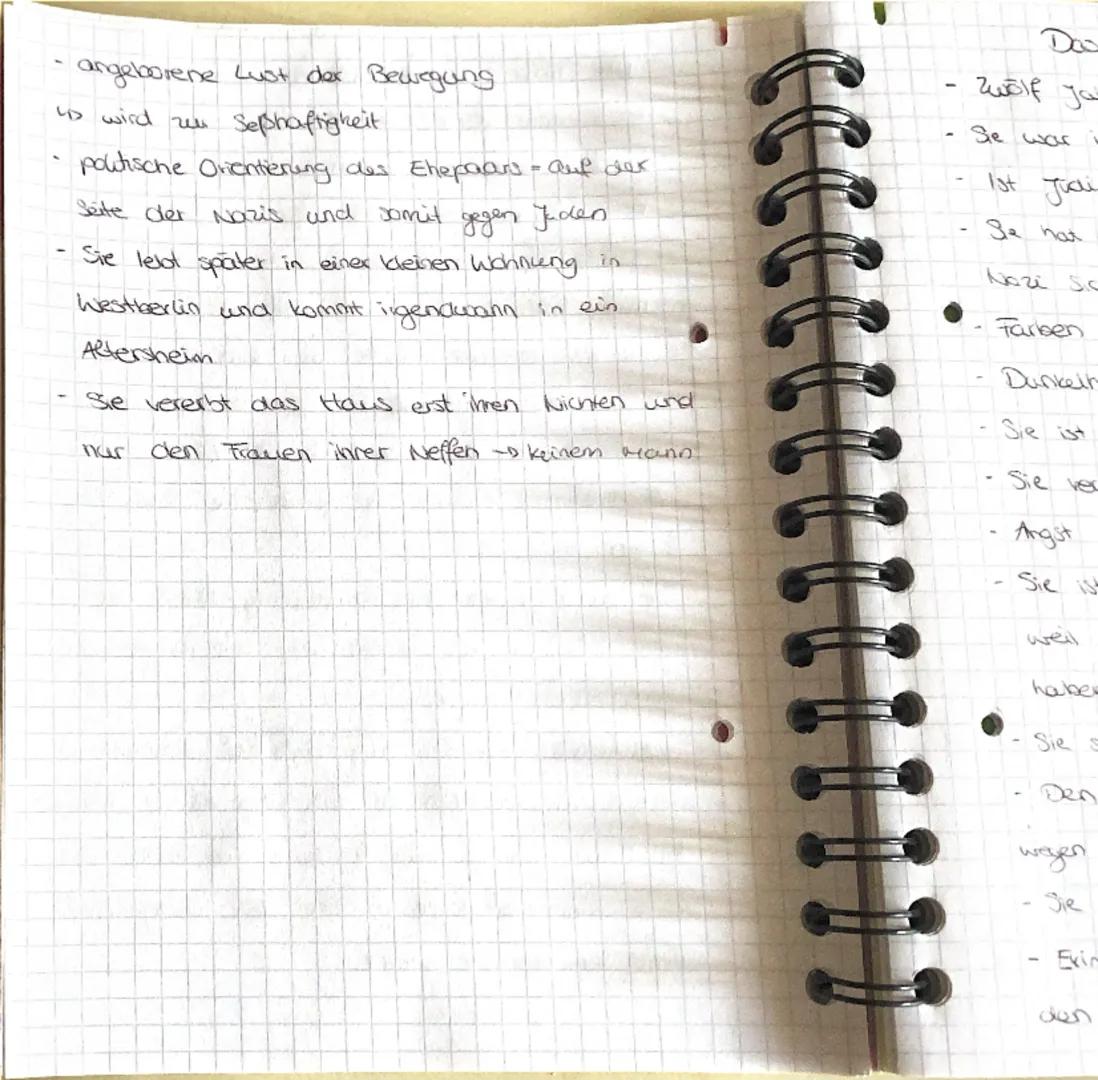 - angeborene Lust der Bewegung
↳ wird zu Seßhaftigkeit
- politische Orientierung des Ehepaars = auf der
Seite der Nazis und somit gegen Juden
- Sie lebt später in einer kleinen Wohnung in
Westberlin und kommt irgendwann in ein
Altersheim
- Sie vererbt das Haus erst ihren Nichten und
nur den Frauen ihrer Neffen → keinem Mann
- Zwölf
- Sie war
- Ist
- Sie hat
Nazi
- Farben
-
- Sie ist
- Sie
- Angst
- Sie
weil
- Sie
- Den
wegen
- Sie
-
den